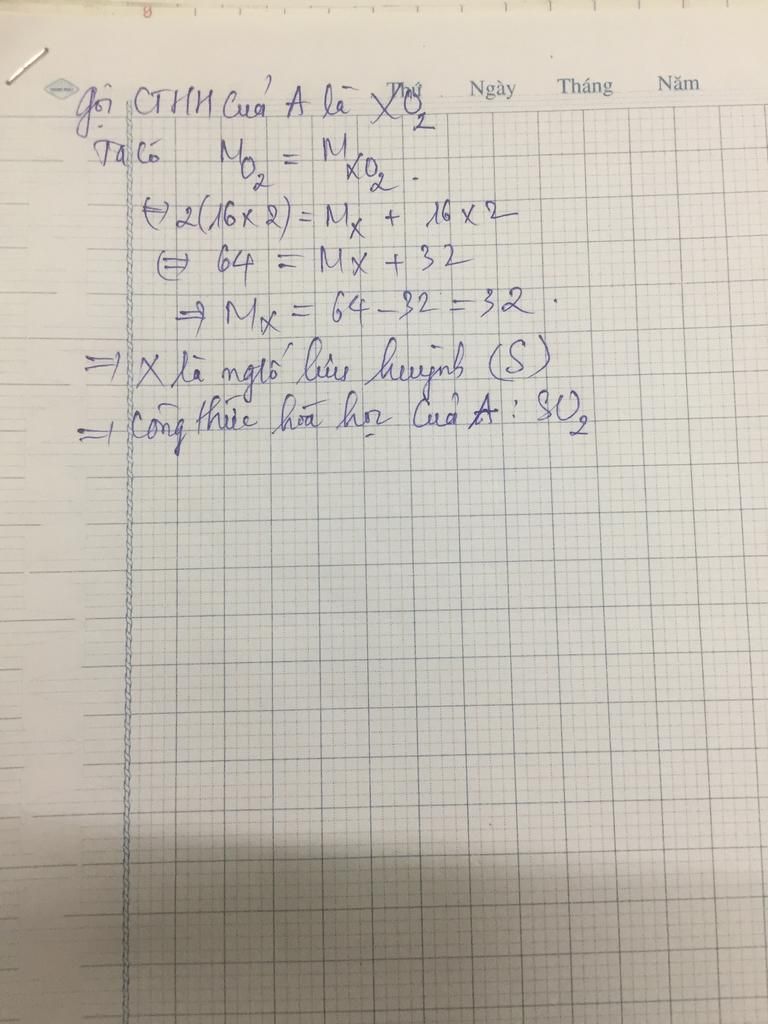 8
Thứ Ngày Tháng Năm
gọi CTHH của A là XO₂
Ta có M_O₂ = M_XO₂.
⇔ 2(16 x 2) = M_X + 16 x 2
⇔ 64 = M_X + 32
⇒ M_X = 64 - 32 = 32.
⇒ X là ngtố lưu huỳnh (S)
⇒ Công thức hoá học của A : SO₂